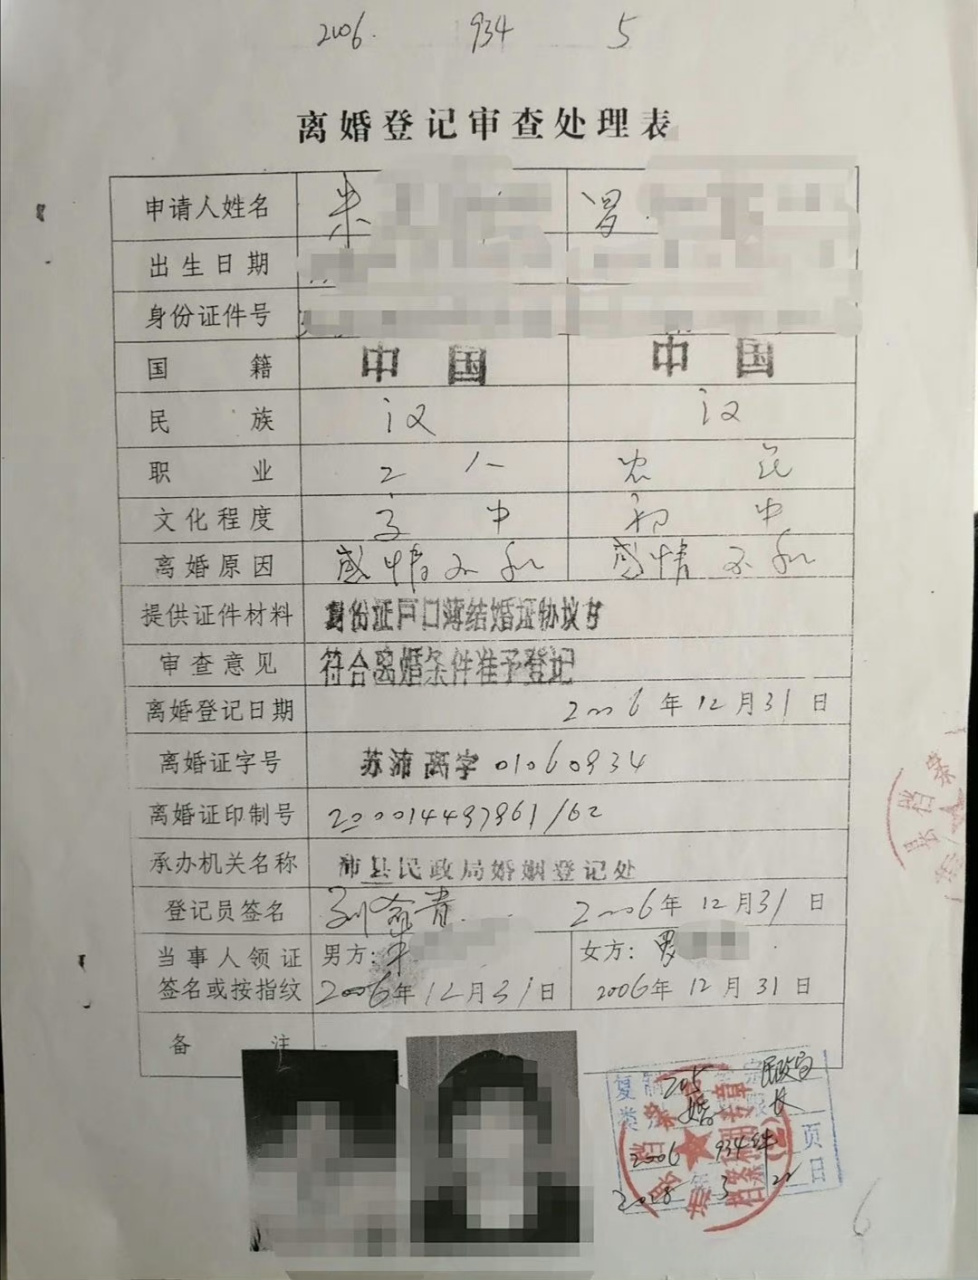 2006. 934 5
离婚登记审查处理表
申请人姓名 朱
出生日期
身份证件号
国籍 中国 中国
民族 汉 汉
职业 工人 农民
文化程度 高中 初中
离婚原因 感情不和 感情不和
提供证件材料 身份证户口薄结婚证协议书
审查意见 符合离婚条件准予登记
离婚登记日期 2006年12月31日
离婚证字号 苏沛离字01060934
离婚证印制号 200014497861/62
承办机关名称 沛县民政局婚姻登记处
登记员签名 2006年12月31日
当事人领证 男方：朱 女方：
签名或按指纹 2006年12月31日 2006年12月31日
备注
民政局
婚
2006 934 页
日
6